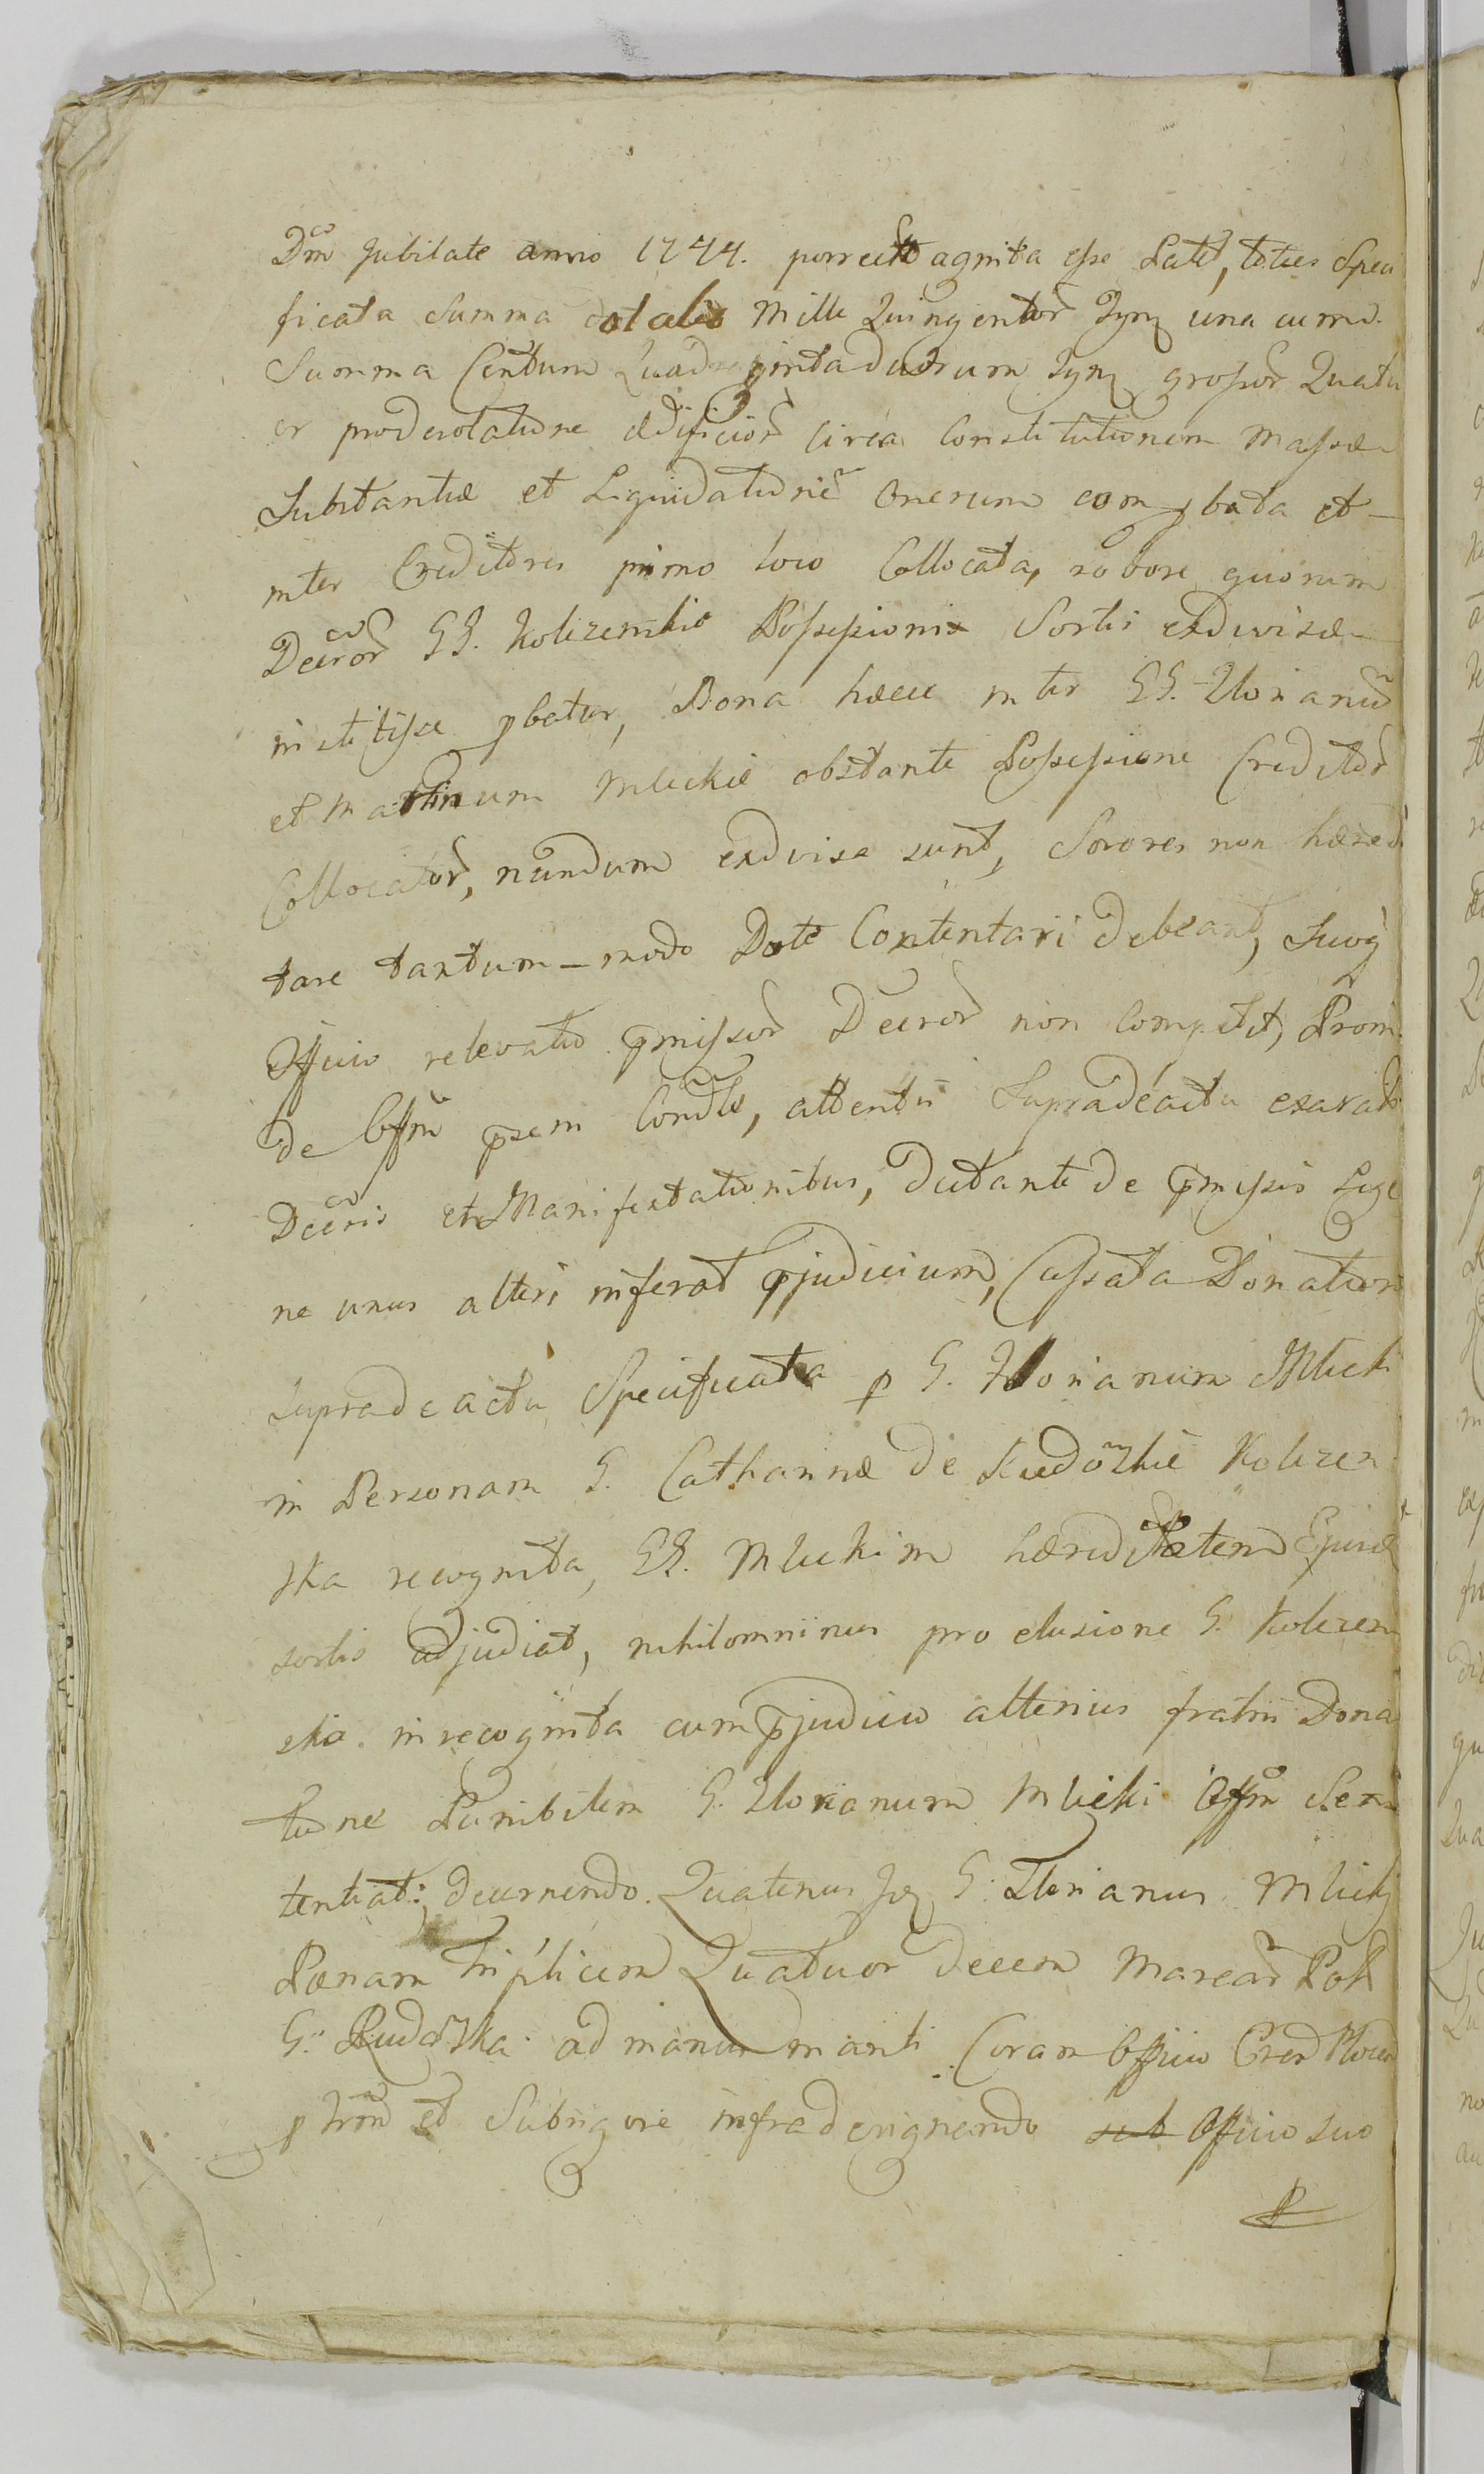 Dm̃ Jubilate anno 1744. porrecta agnita esse Patet, toties Speci
ficata Summa dotalis Mille Quingentor̃ Tymf una cum
Summa Centum Quadraginta duorum Tymf grossor̃ Quatu
or pro desolatione ædificior̃ circa Constitutionem Massæ
Substantiæ et Liquidationẽ Onerum comprobata et
inter Creditores primo loco Collocata, robore quorum
Decror̃ GG. Kolczenskie Possessionis Sortis exdivisæ
institisse pbatur, Bona hæcce inter GG. Florianũ
et Martinum Mlickie obstante Possessione Creditor̃
Collocator̃, nundum exdivisa sunt, Sorores non hæredi
tare tantum-modo Dote Contentari debeant, Suoq̃
Officio relevatio p̃missor̃ Decror̃ non Competit, Proin
de Offm̃ p̃sens, attentis Supradeactu exarat
Decris et Manifestationibus, dictante de p̃missis Lege
ne unus alteri inferat p̃judicium, Cassata Donation
supradeactu Specificata p G. Florianum Mlicki
in Personam G. Catharinæ de Kolczen
ska recognita, GG. Mlickim hæreditatem
sortis adjudicat, nihilominus pro elusione G. Kolczen
ska in recognita cum p̃judicio alterius fratris Dona
tione Punibilem G. Florianum Mlicki Offm̃ Sen
tentiat; decernendo. Quatenus G. Florianus Mlicki
Pænam triplicem Quatuordecem Marcar̃ Pol
G. Rudoska ad manus mariti Coram Officio
p et Sub rigore infra designando sub Officio suo